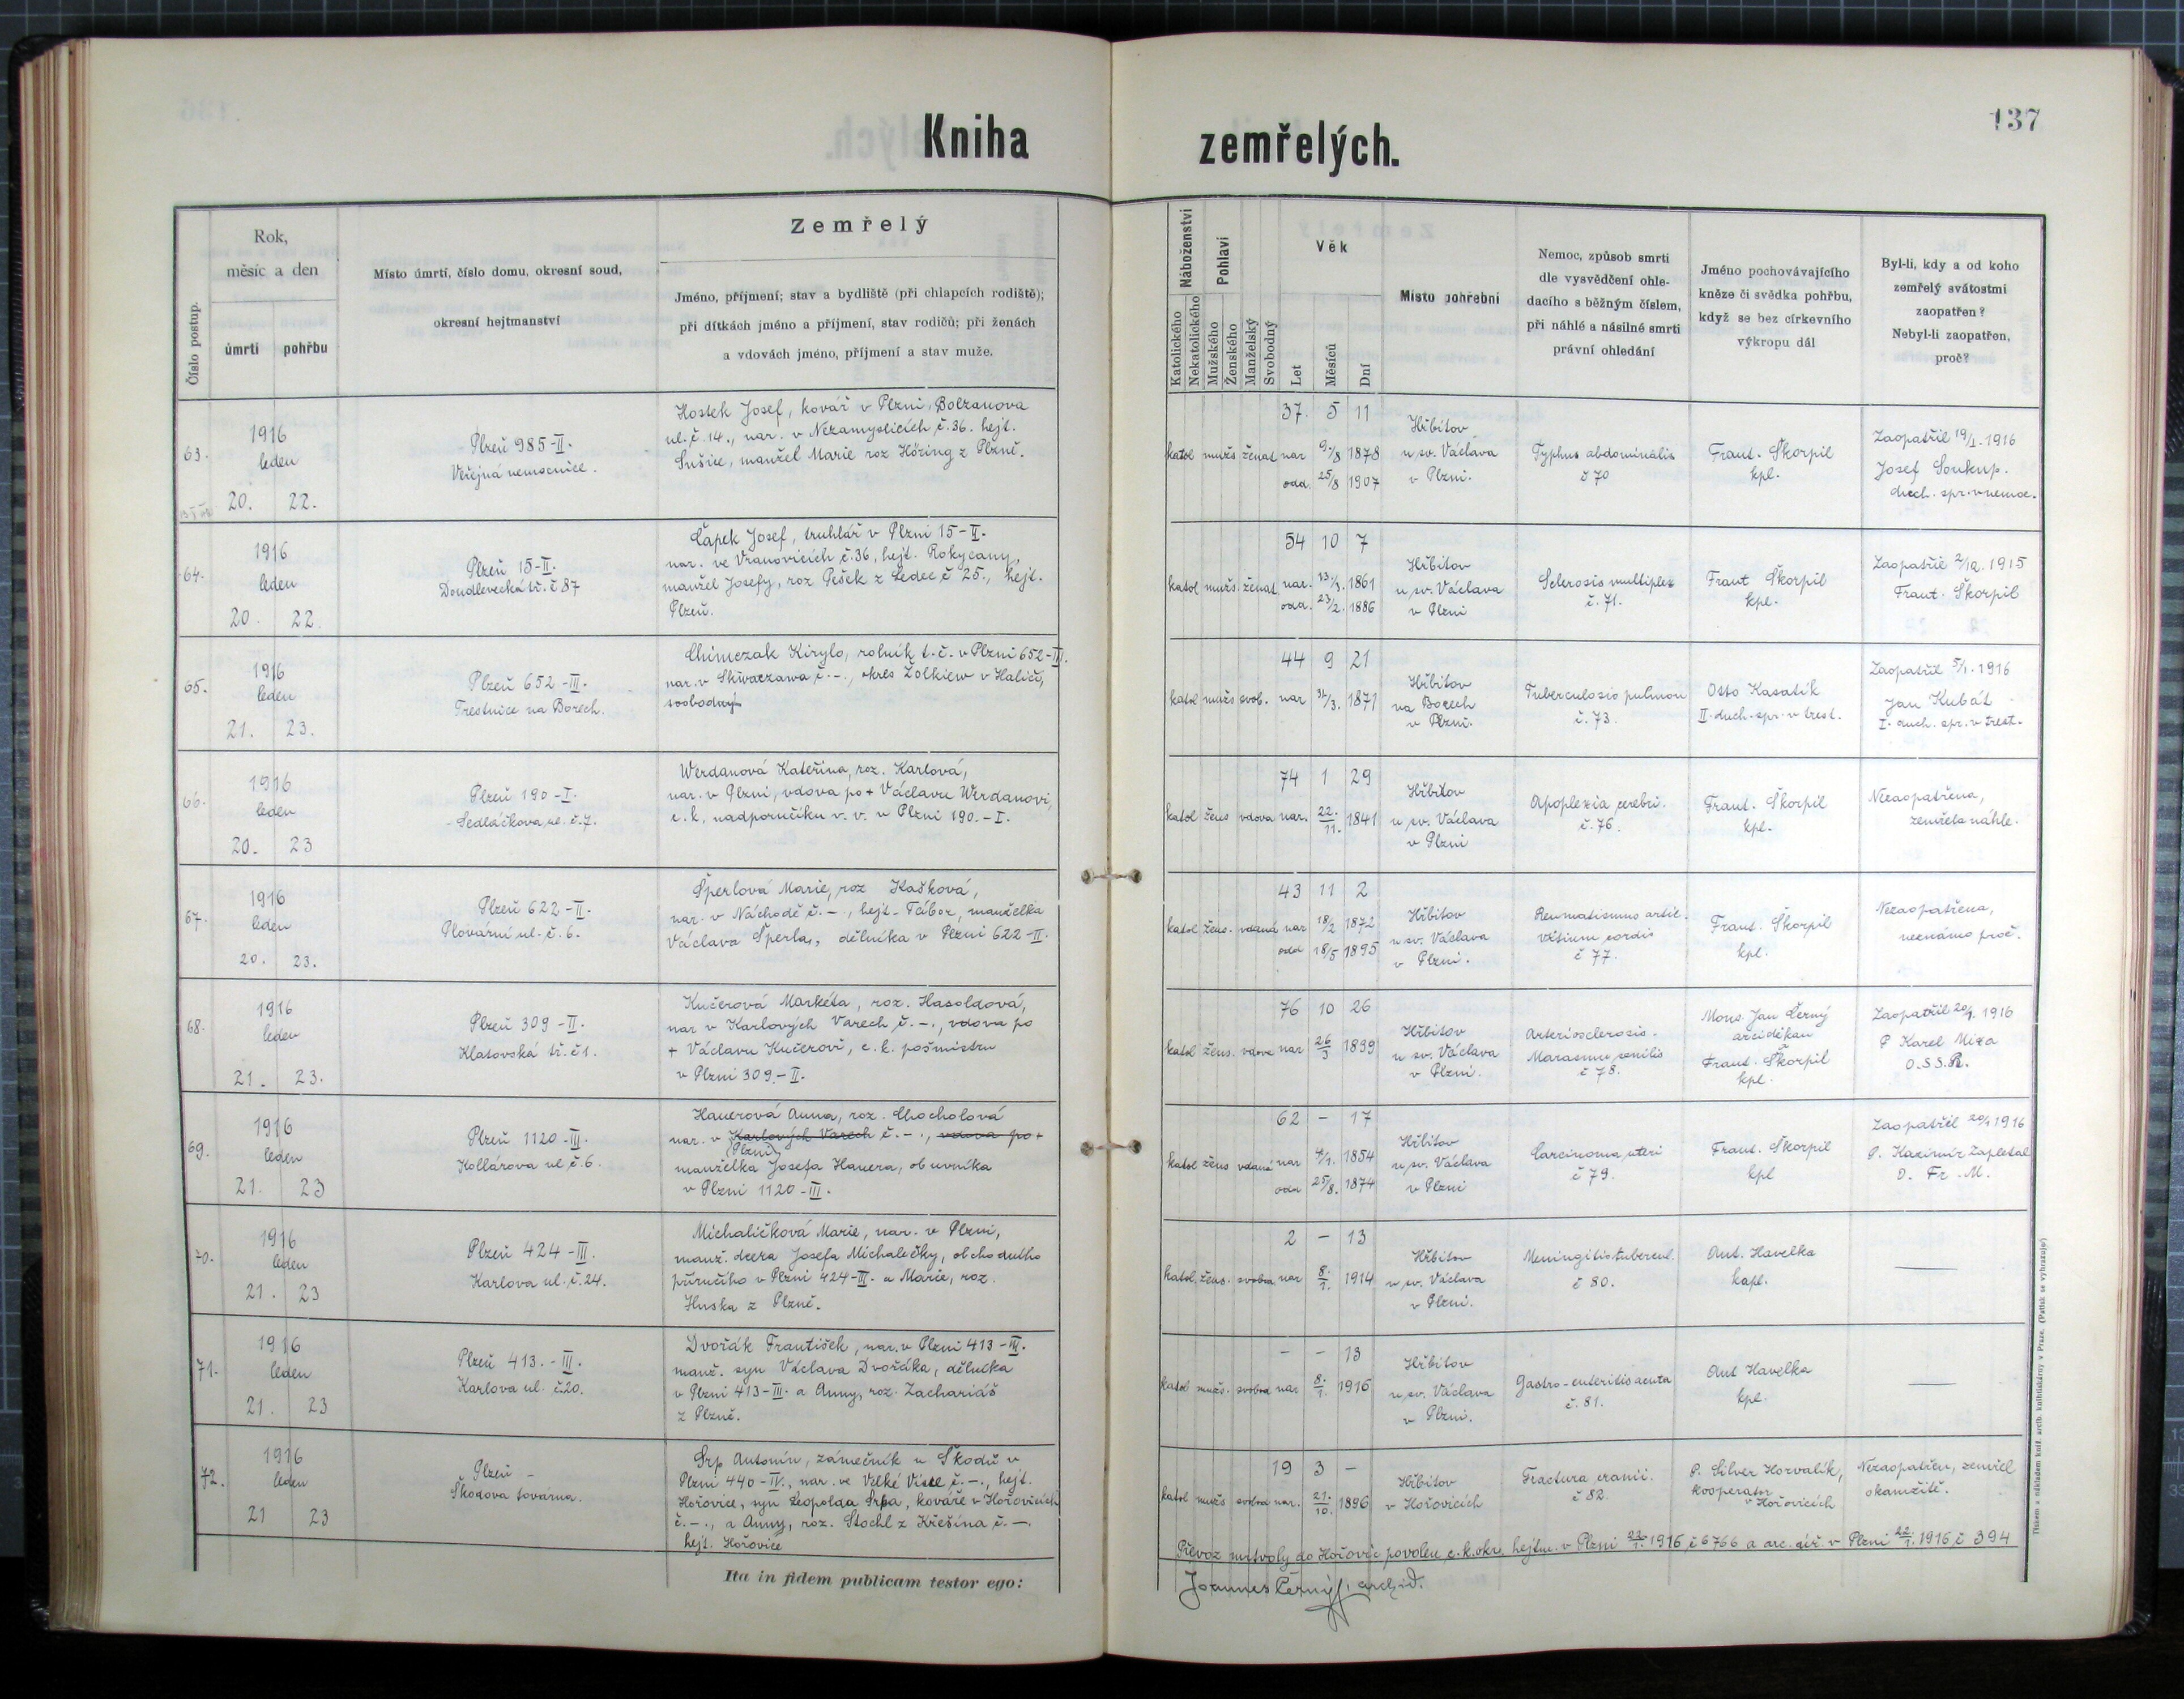 137
Kniha zemřelých.
Číslo postup.
Rok,
měsíc a den
úmrtí
pohřbu
Místo úmrtí, číslo domu, okresní soud,
okresní hejtmanství
Zemřelý
Jméno, příjmení; stav a bydliště (při chlapcích rodiště);
při dítkách jméno a příjmení, stav rodičů; při ženách
a vdovách jméno, příjmení a stav muže.
Náboženství
Katolického
Nekatolického
Pohlaví
Mužského
Ženského
Manželský
Svobodný
Věk
Let
Měsíců
Dní
Místo pohřební
Nemoc, způsob smrti
dle vysvědčení ohle-
dacího s běžným číslem,
při náhlé a násilné smrti
právní ohledání
Jméno pochovávajícího
kněze či svědka pohřbu,
když se bez církevního
výkropu dál
Byl-li, kdy a od koho
zemřelý svátostmi
zaopatřen?
Nebyl-li zaopatřen,
proč?
63.
1916
leden
20. 22.
Plzeň 985-II.
Veřejná nemocnice.
Hostek Josef, kovář v Plzni, Bolzanova
ul. č. 14., nar. v Nezamyslicích č. 36. hejt.
Sušice, manžel Marie roz Höring z Plzně.
37. 5 11
katol mužs ženat nar 9./8 1878
odd. 25/8 1907
Hřbitov
u sv. Václava
v Plzni.
Typhus abdominalis
č 70
Frant. Škorpil
kpl.
Zaopatřil 19/1. 1916
Josef Soukup.
duch. spr. v nemoc.
64.
1916
leden
20. 22.
Plzeň 15-II.
Doudlevecká tř. č 87
Čapek Josef, truhlář v Plzni 15-II.
nar. ve Vranovicích č. 36, hejt. Rokycany,
manžel Josefy, roz Pešek z Ledec č 25., hejt.
Plzeň.
54 10 7
katol mužs. ženat nar. 13/3. 1861
odd. 23/2. 1886
Hřbitov
u sv. Václava
v Plzni
Sclerosis multiplex
č. 71.
Frant Škorpil
kpl.
Zaopatřil 2/12. 1915
Frant. Škorpil
65.
1916
leden
21. 23.
Plzeň 652-III.
Trestnice na Borech.
Chimczak Kirylo, rolník t. č. v Plzni 652-III.
nar. v Skwarzawa č. -., okres Žolkiew v Haliči,
svobodný
44 9 21
katol mužs svob. nar 31/3. 1871
Hřbitov
na Borech
v Plzni.
Tuberculosis pulmon
č. 73.
Otto Kasatík
II. duch. spr. v trest.
Zaopatřil 5/1. 1916
Jan Kubát
I. duch. spr. v trest.
66.
1916
leden
20. 23
Plzeň 190-I.
Sedláčkova ul. č. 7.
Werdanová Kateřina, roz. Karlová,
nar. v Plzni, vdova po + Václavu Werdanovi,
c. k. nadporučíku v. v. v Plzni 190.-I.
74 1 29
katol žens vdova nar. 22./11. 1841
Hřbitov
u sv. Václava
v Plzni
Apoplexia cerebri.
č. 76.
Frant. Škorpil
kpl.
Nezaopatřena,
zemřela náhle.
67.
1916
leden
20. 23.
Plzeň 622-II.
Plovární ul. č. 6.
Šperlová Marie, roz Kašková,
nar. v Náchodě č. -., hejt. Tábor, manželka
Václava Šperla, dělníka v Plzni 622-II.
43 11 2
katol žens. vdaná nar 18/2 1872
odd 18/5 1895
Hřbitov
u sv. Václava
v Plzni.
Reumatismus artic.
Vitium cordis
č 77.
Frant. Škorpil
kpl.
Nezaopatřena,
neznámo proč.
68.
1916
leden
21. 23.
Plzeň 309-II.
Klatovská tř. č 1.
Kučerová Markéta, roz. Hasoldová,
nar v Karlových Varech č. -., vdova po
+ Václavu Kučerovi, c. k. pošmistru
v Plzni 309.-II.
76 10 26
katol žens. vdova nar 26/3 1839
Hřbitov
u sv. Václava
v Plzni.
Arteriosclerosis.
Marasmus senilis
č 78.
Mons. Jan Černý
arciděkan
a
Frant. Škorpil
kpl.
Zaopatřil 20/1. 1916
P Karel Mixa
O.SS.R.
69.
1916
leden
21. 23
Plzeň 1120-III.
Kollárova ul. č. 6.
Hauerová Anna, roz. Chocholová
nar. v Karlových Varech č. -., vdova po +
(Plzni)
manželka Josefa Hauera, obuvníka
v Plzni 1120-III.
62 - 17
katol žens vdaná nar 4/1. 1854
odd 25/8. 1874
Hřbitov
u sv. Václava
v Plzni
Carcinoma uteri
č 79.
Frant. Škorpil
kpl
Zaopatřil 20/1 1916
P. Kazimír Zapletal
O. Fr. M.
70.
1916
leden
21. 23
Plzeň 424-III.
Karlova ul. č. 24.
Michaličková Marie, nar. v Plzni,
manž. dcera Josefa Michaličky, obchodního
příručího v Plzni 424-III. a Marie, roz.
Huska z Plzně.
2 - 13
katol. žens. svobod nar 8./1. 1914
Hřbitov
u sv. Václava
v Plzni.
Meningitis tubercul.
č 80.
Ant. Havelka
kapl.
71.
1916
leden
21. 23
Plzeň 413.-III.
Karlova ul. č. 20.
Dvořák František, nar. v Plzni 413-III.
manž. syn Václava Dvořáka, dělníka
v Plzni 413-III. a Anny, roz. Zachariáš
z Plzně.
- - 13
katol mužs. svobod nar 8./1. 1916
Hřbitov
u sv. Václava
v Plzni.
Gastro-enteritis acuta
č. 81.
Ant Havelka
kpl.
72.
1916
leden
21 23
Plzeň -
Škodova továrna.
Srp Antonín, zámečník u Škodů v
Plzni 440-IV., nar. ve Velké Vísce č. -., hejt.
Hořovice, syn Leopolda Srpa, kováře v Hořovicích
č. -., a Anny, roz. Stochl z Křešína č. -.
hejt. Hořovice
19 3 -
katol mužs svobod nar. 21./10. 1896
Hřbitov
v Hořovicích
Fractura cranii.
č 82.
P. Silver Horvalík,
kooperator
v Hořovicích
Nezaopatřen, zemřel
okamžitě.
Převoz mrtvoly do Hořovic povolen c. k. okr. hejtm. v Plzni 22./1. 1916 č 6766 a arc. úř. v Plzni 22./1. 1916 č 394
Ita in fidem publicam testor ego:
Joannes Černý, archid.
Tiskem a nákladem kníž. arcib. knihtiskárny v Praze. (Patisk se vyhrazuje)